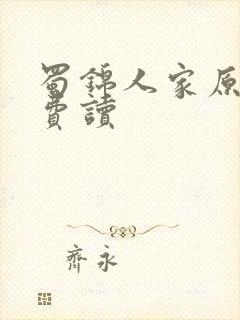 蜀錦人家原
費讀
齊永